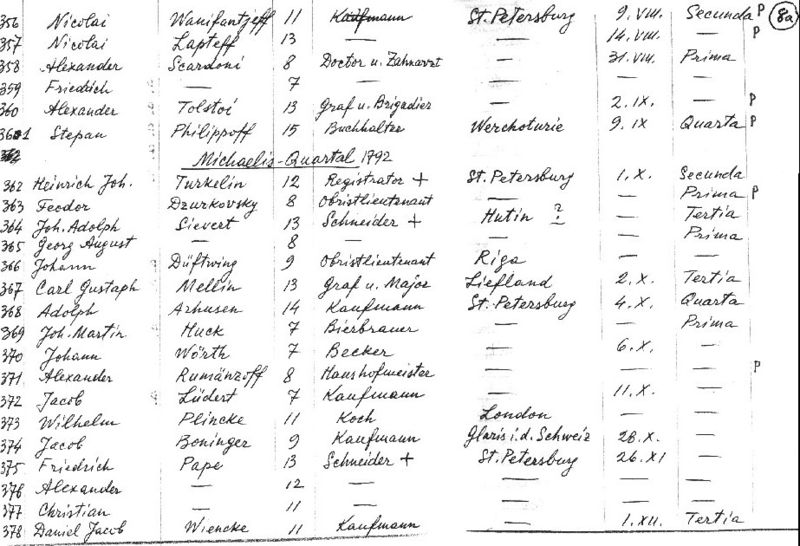 356 Nicolai Wanifantjeff 11 Kaufmann St. Petersburg 9. VIII. Secunda P 8a
357 Nicolai Lapteff 13 — — 14. VIII. — P
358 Alexander Scardoni 8 Doctor u. Zahnarzt — 31. VIII. Prima
359 Friedrich — 7 — — — —
360 Alexander Tolstoi 13 Graf u. Brigadier — 2. IX. — P
361 Stepan Philippoff 15 Buchhalter Werchoturie 9. IX Quarta P
Michaelis-Quartal 1792
362 Heinrich Joh. Turkelin 12 Registrator + St. Petersburg 1. X. Secunda
363 Feodor Dzurkovsky 8 Obristlieutenant — — Prima P
364 Joh. Adolph Sievert 13 Schneider + Hutin ? — Tertia
365 Georg August — 8 — — — Prima
366 Johann Düftwing 9 Obristlieutenant Riga — —
367 Carl Gustaph Mellin 13 Graf u. Major Liefland 2. X. Tertia
368 Adolph Arhusen 14 Kaufmann St. Petersburg 4. X. Quarta
369 Joh. Martin Huck 7 Bierbrauer — — Prima
370 Johann Wörth 7 Becker — 6. X. —
371 Alexander Rumänzoff 8 Haushofmeister — — — P
372 Jacob Lüdert 7 Kaufmann — 11. X. —
373 Wilhelm Plincke 11 Koch London — —
374 Jacob Beninger 9 Kaufmann Glaris i. d. Schweiz 28. X. —
375 Friedrich Pape 13 Schneider + St. Petersburg 26. XI —
376 Alexander — 12 — — — —
377 Christian — 11 — — — —
378 Daniel Jacob Wiencke 11 Kaufmann — 1. XII. Tertia